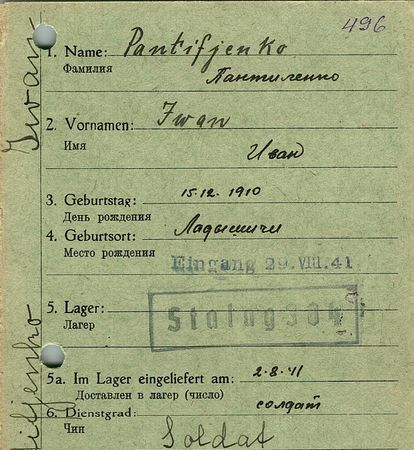 496
1. Name: Pantifjenko
Фамилия
Пантиленко
2. Vornamen: Iwan
Имя
Иван
3. Geburtstag: 15.12.1910
День рождения
4. Geburtsort: Ладышичи
Место рождения
Eingang 29. VIII. 41
5. Lager: Stalag 304
Лагер
5a. Im Lager eingeliefert am: 2.8.41
Доставлен в лагер (число)
6. Dienstgrad: солдат
Чин
Soldat
Iwan